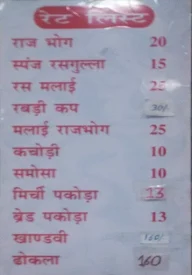 रेट लिस्ट
राज भोग 20
स्पंज रसगुल्ला 15
रस मलाई 25
रबड़ी कप
मलाई राजभोग 25
कचोड़ी 10
समोसा 10
मिर्ची पकोड़ा 13
ब्रेड पकोड़ा 13
खाण्डवी 160/
ढोकला 160